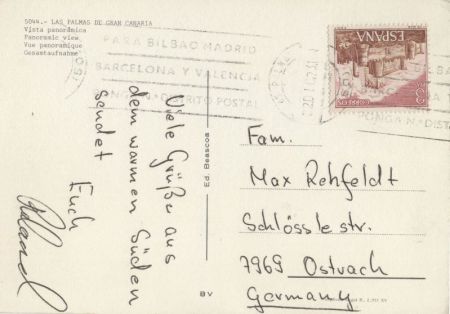 5044.- LAS PALMAS DE GRAN CANARIA
Vista panorámica
Panoramic view
Vue panoramique
Gesamtaufnahme
PARA BILBAO MADRID
BARCELONA Y VALENCIA
PONGA N.º DISTRITO POSTAL
ESPAÑA
CORREOS
3
Viele Grüße aus
dem warmen Süden
sendet
Euch
Ed. Beascoa
BV
Fam.
Max Rehfeldt
Schlössle str.
7969 Ostrach
Germany